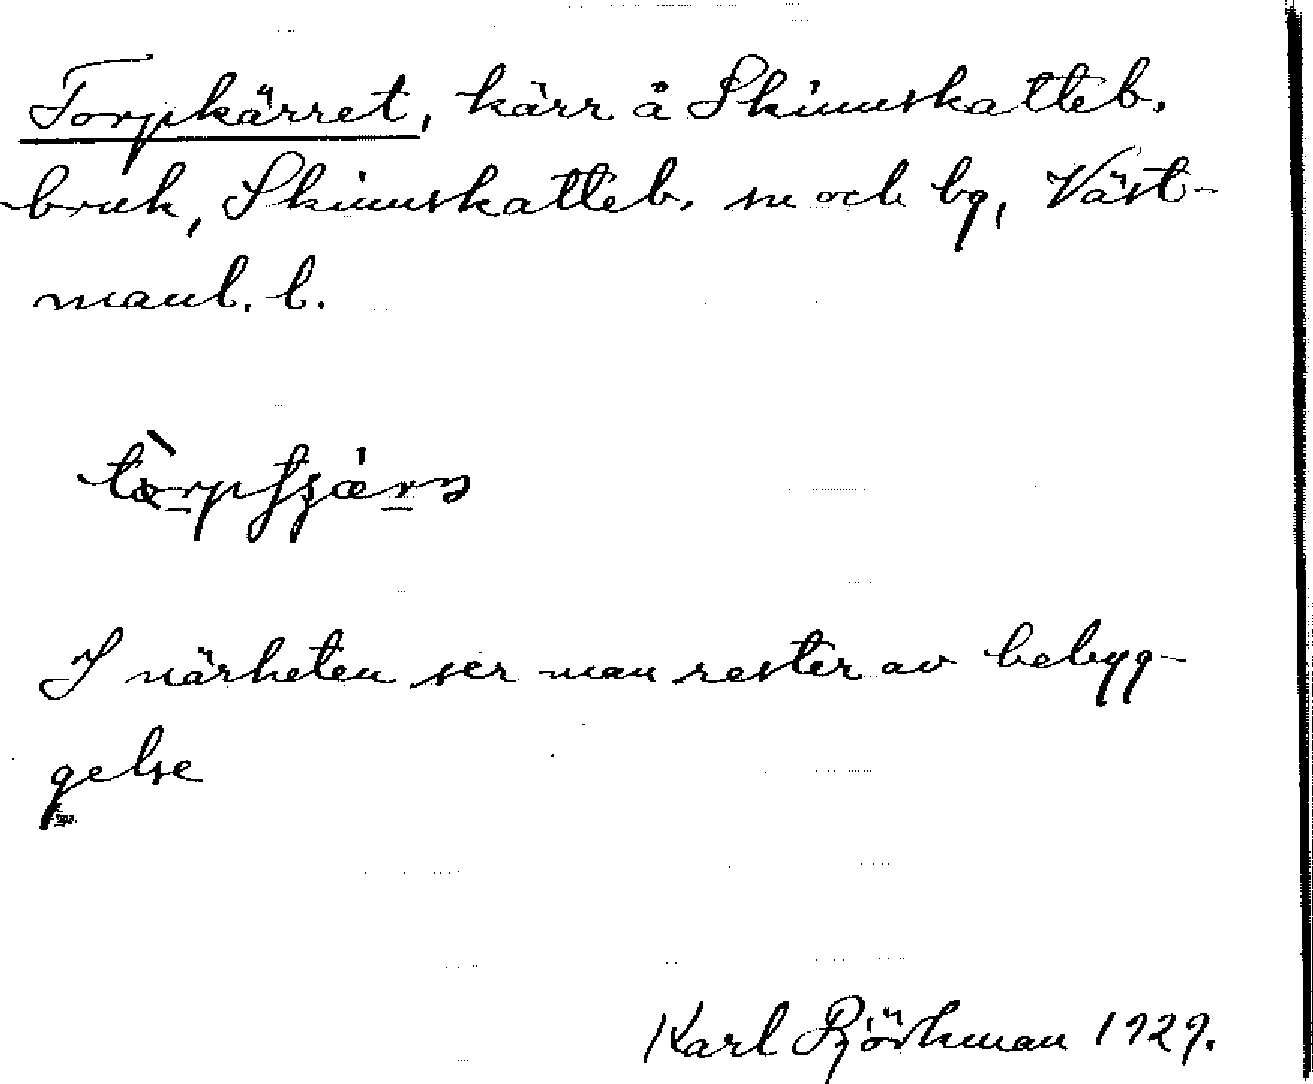 Torpkärret, kärr å Skinnskatteb.
bruk, Skinnskatteb. sn och bg, Väst-
manl. l.
I närheten ser man rester av bebyg-
gelse
Karl Björkman 1929.